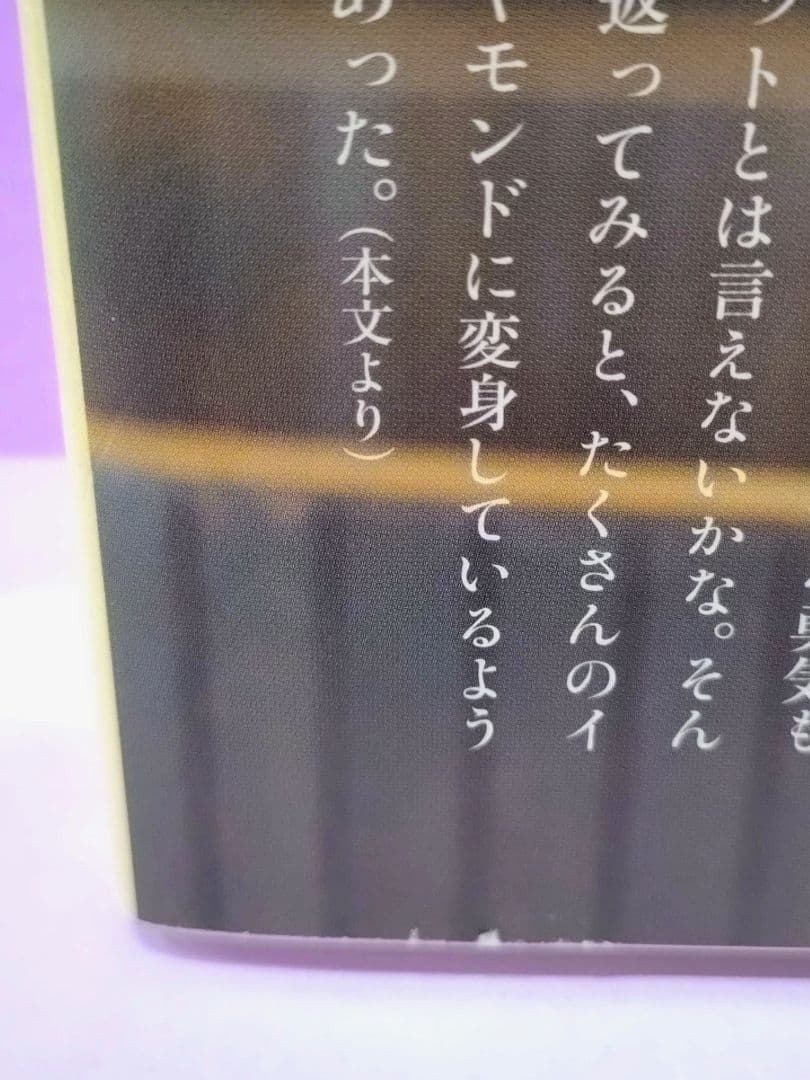 勇気も
ットとは言えないかな。そん
返ってみると、たくさんのイ
ヤモンドに変身しているよう
あった。（本文より）